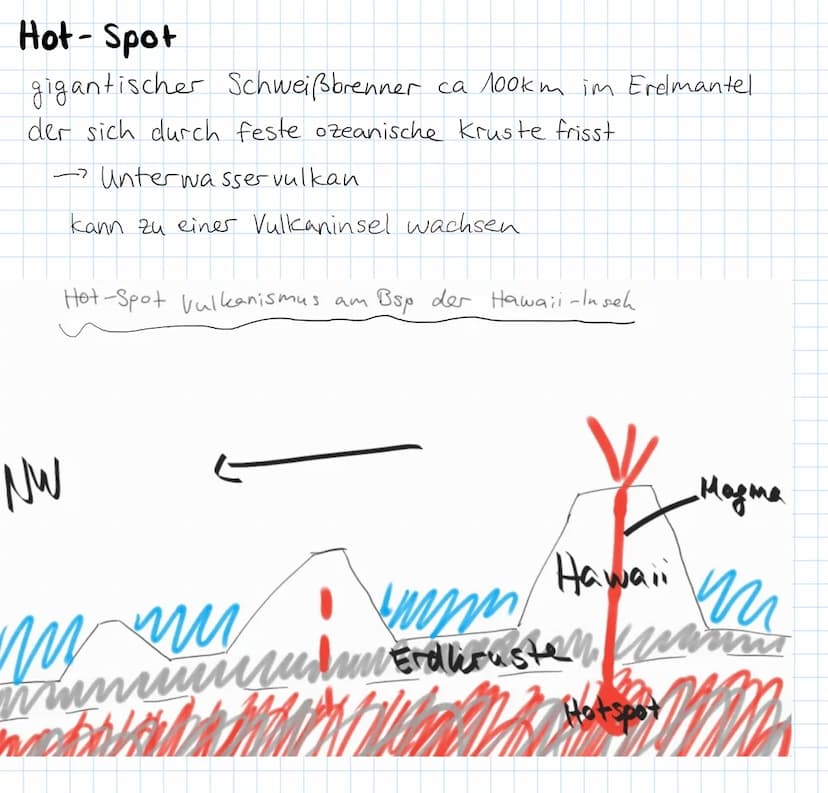 Hot-Spot
gigantischer Schweißbrenner ca 100km im Erdmantel
der sich durch feste ozeanische Kruste frisst
→ Unterwasservulkan
kann zu einer Vulkaninsel wachsen
Hot-Spot Vulkanismus am Bsp der Hawaii-Inseln
NW
Magma
Hawaii
Erdkruste
Hotspot